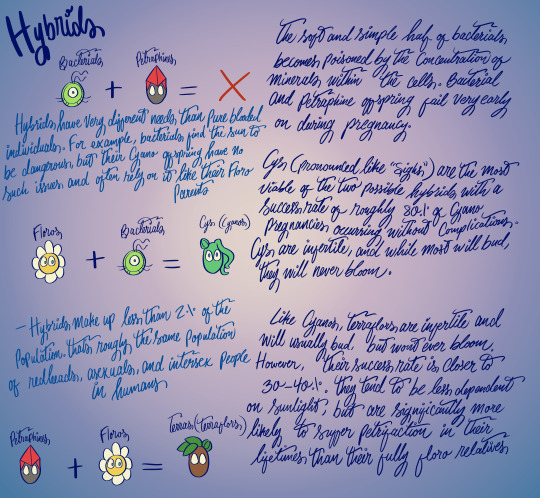 Hybrids
Bacterials
Petraphines
+
=
Hybrids have very different needs, than pure blooded
individuals. For example, bacterials find the sun to
be dangerous, but their Cyano offspring have no
such issues and often rely on it like their Floro
Parents
Floros
Bacterials
Cys (Cyanos)
+
=
- Hybrids make up less than 2% of the
Population. thats roughly the same Population
of redheads, asexuals, and intersex people
in humans
Petraphines
Floros
Terras (terraflors)
+
=
The soft and simple half of bacterials
becomes poisoned by the concentration of
minerals within the cells. Bacterial
and Petraphine offspring fail very early
on during pregnancy.
Cys (pronounced like "Sighs") are the most
viable of the two possible hybrids, with a
success rate of roughly 80% of Cyano
pregnancies occurring without Complications.
Cys are infertile, and while most will bud,
they will never bloom.
Like Cyanos, terraflors, are infertile and
will usually bud, but wont ever bloom.
However, their success rate is closer to
30-40%. they tend to be less dependent
on sunlight, but are significantly more
likely to suffer petrifaction in their
lifetimes than their fully floro relatives